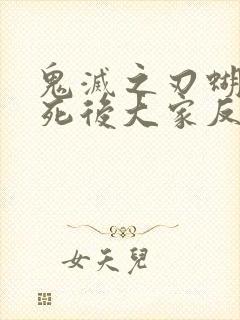 鬼滅之刃蝴
死後大家反
女天兒